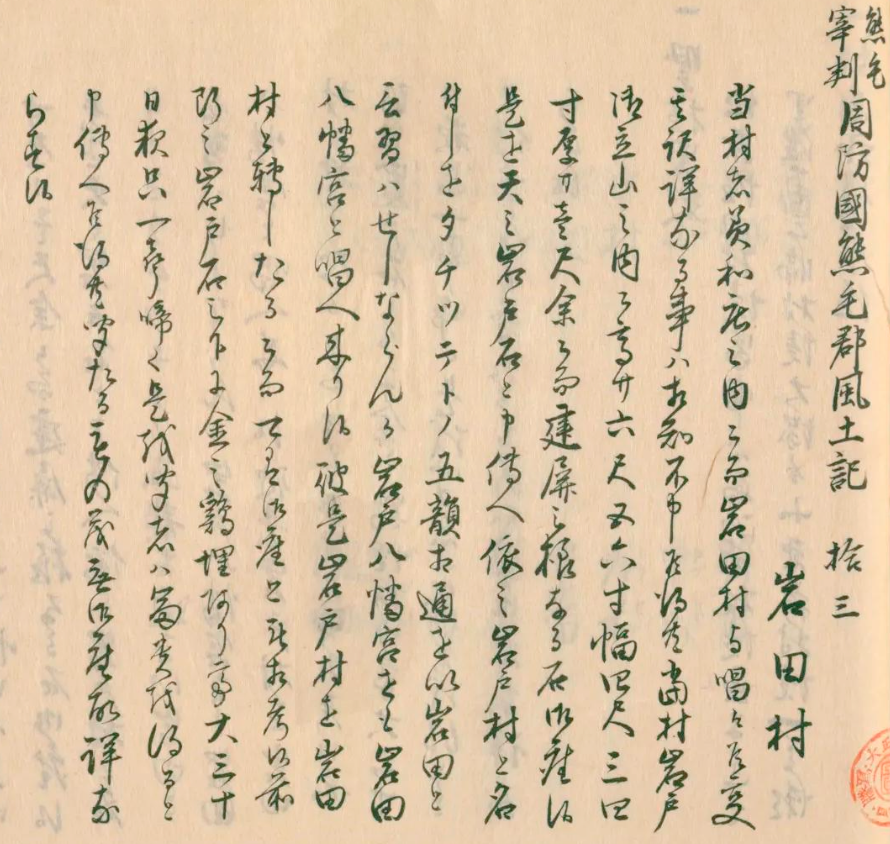 熊毛
宰判
周防國熊毛郡風土記 拾三
岩田村
当村者美和庄之内ニ而岩田村与唱候変
其訳詳なる事ハ相知不申候得共当村岩戸
御立山之内ニ高サ六尺五六寸幅四尺三四
寸厚サ壱尺余ニ而建屏之様なる石御座候
是を天之岩戸石と申傳へ依之岩戸村と名
付しをタチツテトノ五韻相通を以岩田と
言習ハせしならんか岩戸八幡宮をも岩田
八幡宮と唱へ来り候彼是岩戸村を岩田
村と轉したるニ而可有御座と相考候前
断之岩戸石之下に金之鶏埋
日夜只一声啼く是を聞者ハ富貴を得ると
申傳へ候得共聞たるもの茂無御座故詳な
らす候